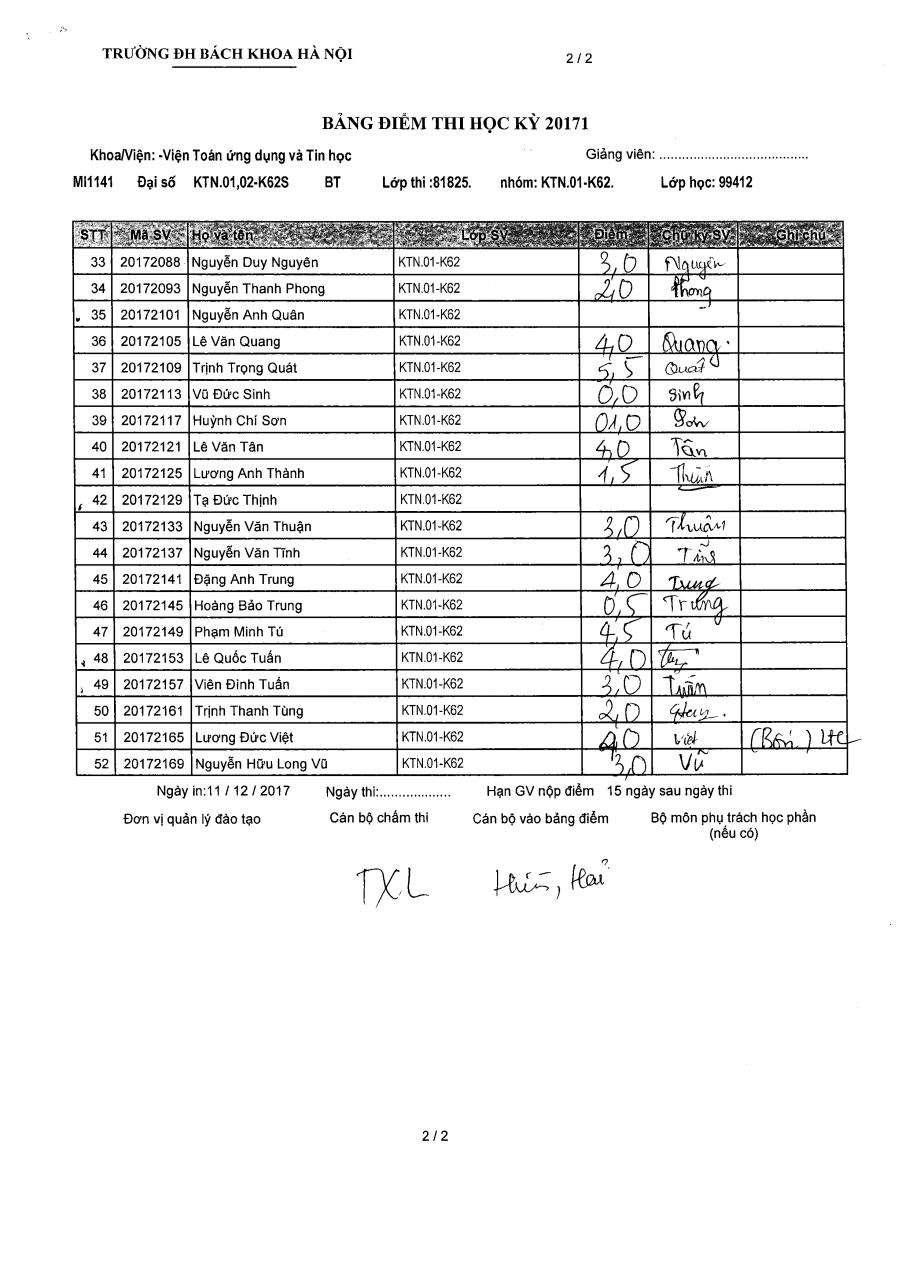 TRƯỜNG ĐH BÁCH KHOA HÀ NỘI 2 / 2
BẢNG ĐIỂM THI HỌC KỲ 20171
Khoa/Viện: -Viện Toán ứng dụng và Tin học Giảng viên: ........................................
MI1141 Đại số KTN.01,02-K62S BT Lớp thi :81825. nhóm: KTN.01-K62. Lớp học: 99412
STT Mã SV Họ và tên Lớp SV Điểm Chữ ký SV Ghi chú
33 20172088 Nguyễn Duy Nguyên KTN.01-K62 3,0 Nguyên
34 20172093 Nguyễn Thanh Phong KTN.01-K62 2,0 Phong
35 20172101 Nguyễn Anh Quân KTN.01-K62
36 20172105 Lê Văn Quang KTN.01-K62 4,0 Quang
37 20172109 Trịnh Trọng Quát KTN.01-K62 5,5 Quát
38 20172113 Vũ Đức Sinh KTN.01-K62 0,0 Sinh
39 20172117 Huỳnh Chí Sơn KTN.01-K62 01,0 Sơn
40 20172121 Lê Văn Tân KTN.01-K62 4,0 Tân
41 20172125 Lương Anh Thành KTN.01-K62 1,5
42 20172129 Tạ Đức Thịnh KTN.01-K62
43 20172133 Nguyễn Văn Thuận KTN.01-K62 3,0 Thuận
44 20172137 Nguyễn Văn Tĩnh KTN.01-K62 3,0
45 20172141 Đặng Anh Trung KTN.01-K62 4,0 Trung
46 20172145 Hoàng Bảo Trung KTN.01-K62 0,5 Trung
47 20172149 Phạm Minh Tú KTN.01-K62 4,5 Tú
48 20172153 Lê Quốc Tuấn KTN.01-K62 4,0
49 20172157 Viên Đình Tuấn KTN.01-K62 3,0 Tuấn
50 20172161 Trịnh Thanh Tùng KTN.01-K62 2,0
51 20172165 Lương Đức Việt KTN.01-K62 4,0 Việt (Bốn)
52 20172169 Nguyễn Hữu Long Vũ KTN.01-K62 3,0 Vũ
Ngày in:11 / 12 / 2017 Ngày thi:................... Hạn GV nộp điểm 15 ngày sau ngày thi
Đơn vị quản lý đào tạo Cán bộ chấm thi Cán bộ vào bảng điểm Bộ môn phụ trách học phần
(nếu có)
TXL Hiền, Hải
2 / 2